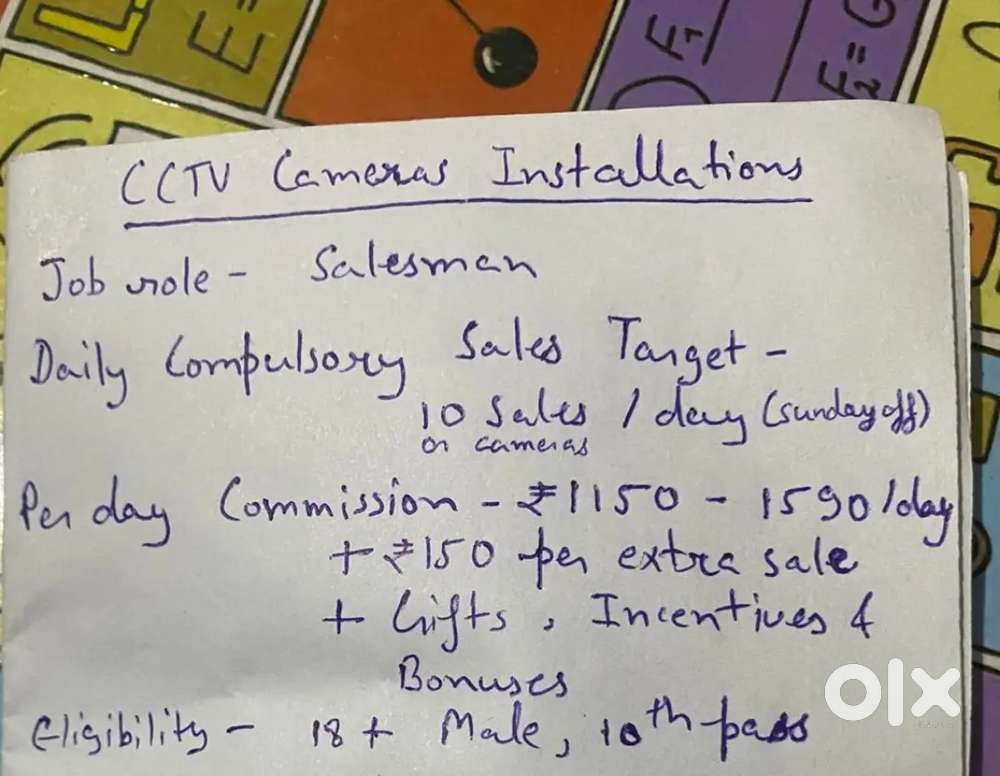 E=
F1
F2=G
CCTV Cameras Installations
Job role - Salesman
Daily Compulsory Sales Target -
10 Sales / day (sunday off)
or cameras
Per day Commission - ₹1150 - 1590/day
+ ₹150 per extra sale
+ Gifts, Incentives &
Bonuses
Eligibility - 18+ Male, 10th pass
olx